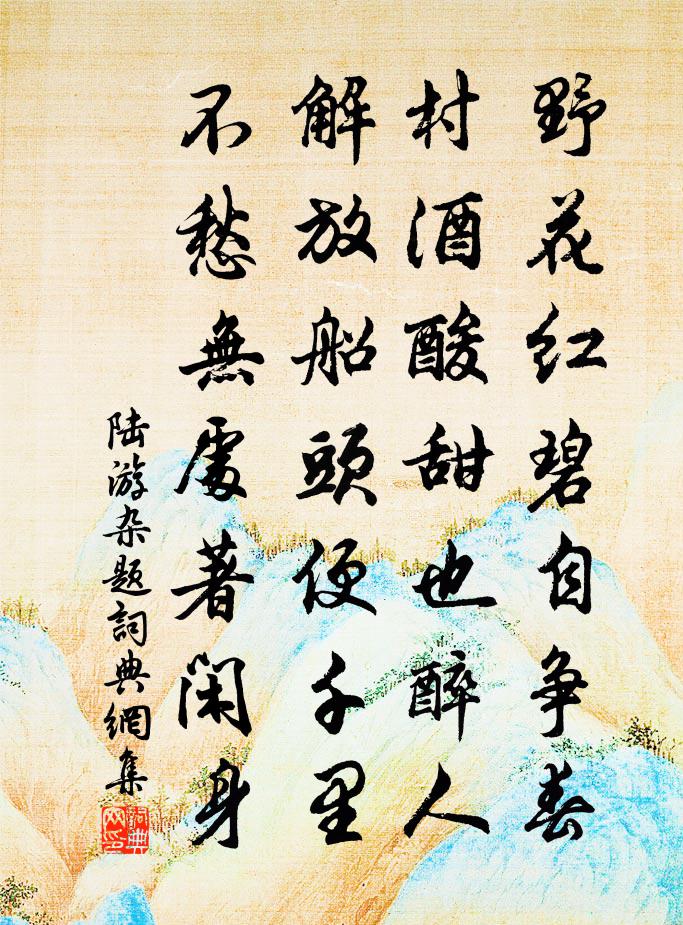 野花红碧自争春
村酒酸甜也醉人
解放船頭便千里
不愁無處著闲身
陆游杂题詞典網集
詞典
网印